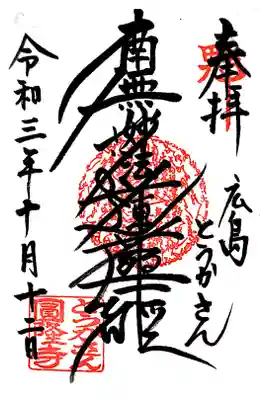 奉拝
広島
とうかさん
南無妙法蓮華経
令和三年十月十二日
とうかさん
圓隆寺